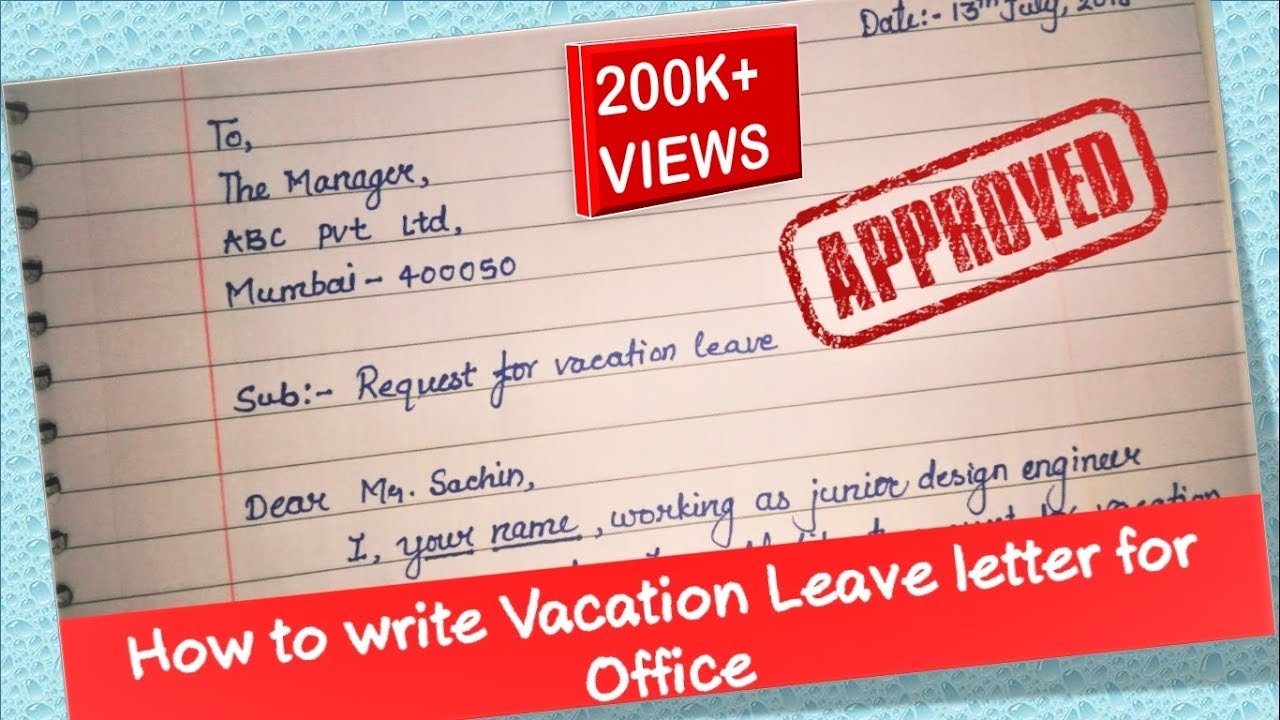 Date:- 13th July, 2018
200K+
VIEWS
To,
The Manager,
ABC pvt Ltd,
Mumbai - 400050
APPROVED
Sub:- Request for vacation leave
Dear Mr. Sachin,
I, your name, working as junior design engineer
vacation
How to write Vacation Leave letter for
Office